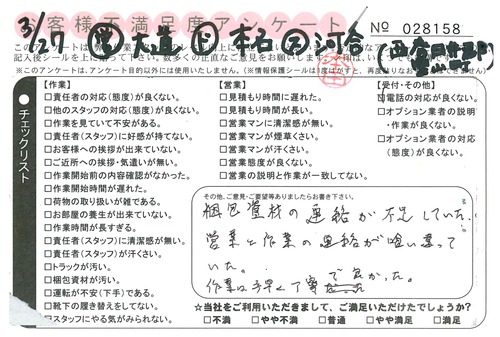 お客様不満足度アンケート
№ 028158
3/27 営 大道 ド 本石 ア 河合
記入後シールを上に貼って下さい。
(※このアンケートは、アンケート目的以外には使用いたしません。)
チェックリスト
【作業】
□責任者の対応(態度)が良くない。
□他のスタッフの対応(態度)が良くない。
□作業を見ていて不安がある。
□責任者(スタッフ)に好感が持てない。
□お客様への挨拶が出来ていない。
□ご近所への挨拶・気遣いが無い。
□作業開始前の内容確認がなかった。
□作業開始時間が遅れた。
□荷物の取り扱いが雑である。
□お部屋の養生が出来ていない。
□作業時間が長すぎる。
□責任者(スタッフ)に清潔感が無い。
□責任者(スタッフ)が汗くさい。
□トラックが汚い。
□梱包資材が汚い。
□運転が不安(下手)である。
□靴下の履き替えをしてない。
□スタッフにやる気がみられない。
【営業】
□見積もり時間に遅れた。
□見積もり時間が長い。
□営業マンに清潔感が無い。
□営業マンが煙草くさい。
□営業マンが汗くさい。
□営業態度が良くない。
□営業の説明と作業が一致してない。
【受付・その他】
□電話の対応が良くない。
□オプション業者の説明
・作業が良くない。
□オプション業者の対応
(態度)が良くない。
その他、ご意見・ご要望等ありましたらお書き下さい。
梱包資材の連絡が不足していた。
営業と作業の連絡が喰い違って
いた。
作業は手早く丁寧で良かった。
☆当社をご利用いただきまして、ご満足いただけたでしょうか?
□不満 □やや不満 □普通 □やや満足 □満足